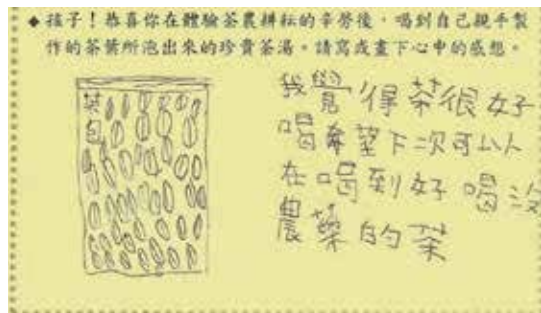 ◆孩子！恭喜你在體驗茶農耕耘的辛勞後，喝到自己親手製
作的茶葉所泡出來的珍貴茶湯。請寫或畫下心中的感想。
茶包
我覺得茶很好
喝希望下次可以
在喝到好喝沒
農藥的茶